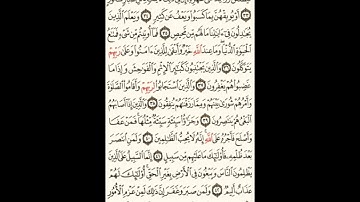 أَوْ يُوبِقْهُنَّ بِمَا كَسَبُوا وَيَعْفُ عَن كَثِيرٍ ٣٤ وَيَعْلَمَ الَّذِينَ
مِّن مَّحِيصٍ ٣٥ فَمَا أُوتِيتُم مِّن شَيْءٍ فَمَتَاعُ
الْحَيَوٰةِ الدُّنْيَا وَمَا عِندَ اللَّهِ خَيْرٌ وَأَبْقَىٰ لِلَّذِينَ ءَامَنُوا وَعَلَىٰ رَبِّهِمْ
يَتَوَكَّلُونَ ٣٦ وَالَّذِينَ يَجْتَنِبُونَ كَبَٰٓئِرَ الْإِثْمِ وَالْفَوَٰحِشَ وَإِذَا مَا
غَضِبُوا هُمْ يَغْفِرُونَ ٣٧ وَالَّذِينَ اسْتَجَابُوا لِرَبِّهِمْ وَأَقَامُوا الصَّلَوٰةَ
وَأَمْرُهُمْ شُورَىٰ بَيْنَهُمْ وَمِمَّا رَزَقْنَٰهُمْ يُنفِقُونَ ٣٨ وَالَّذِينَ إِذَا أَصَابَهُمُ
الْبَغْيُ هُمْ يَنتَصِرُونَ ٣٩ وَجَزَٰٓؤُا سَيِّئَةٍ سَيِّئَةٌ مِّثْلُهَا فَمَنْ عَفَا
وَأَصْلَحَ فَأَجْرُهُ عَلَى اللَّهِ إِنَّهُ لَا يُحِبُّ الظَّٰلِمِينَ ٤٠ وَلَمَنِ انتَصَرَ
بَعْدَ ظُلْمِهِ فَأُولَٰٓئِكَ مَا عَلَيْهِم مِّن سَبِيلٍ ٤١ إِنَّمَا السَّبِيلُ عَلَى الَّذِينَ
يَظْلِمُونَ النَّاسَ وَيَبْغُونَ فِي الْأَرْضِ بِغَيْرِ الْحَقِّ أُولَٰٓئِكَ لَهُمْ
عَذَابٌ أَلِيمٌ ٤٢ وَلَمَن صَبَرَ وَغَفَرَ إِنَّ ذَٰلِكَ لَمِنْ عَزْمِ الْأُمُورِ